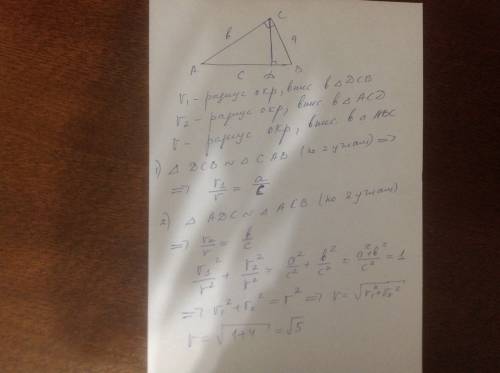 C
в а
A C D B
r₁ - радиус окр, впис. в Δ DCB
r₂ - радиус окр, впис. в Δ ACD
r - радиус окр, впис. в Δ ABC
1) Δ DCB ~ Δ CAB (по 2 углам) =>
=> r₁/r = a/c
2) Δ ADC ~ Δ ACB (по 2 углам)
=> r₂/r = b/c
r₁²/r² + r₂²/r² = a²/c² + b²/c² = a²+b²/c² = 1
=> r₁² + r₂² = r² => r = √(r₁²+r₂²)
r = √(1+4) = √5